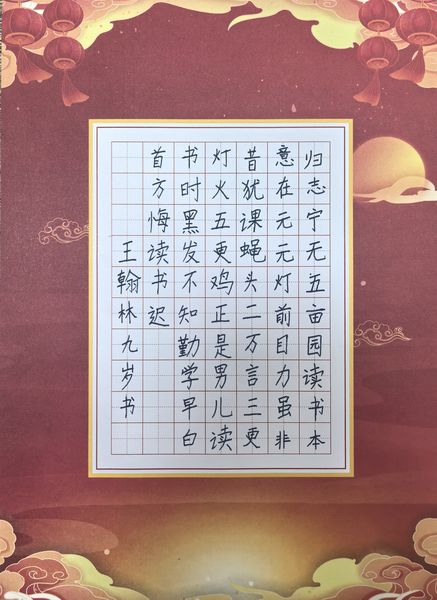 归志宁无五亩园读书本
意在元元灯前目力虽非
昔犹课蝇头二万言三更
灯火五更鸡正是男儿读
书时黑发不知勤学早白
首方悔读书迟
王翰林九岁书